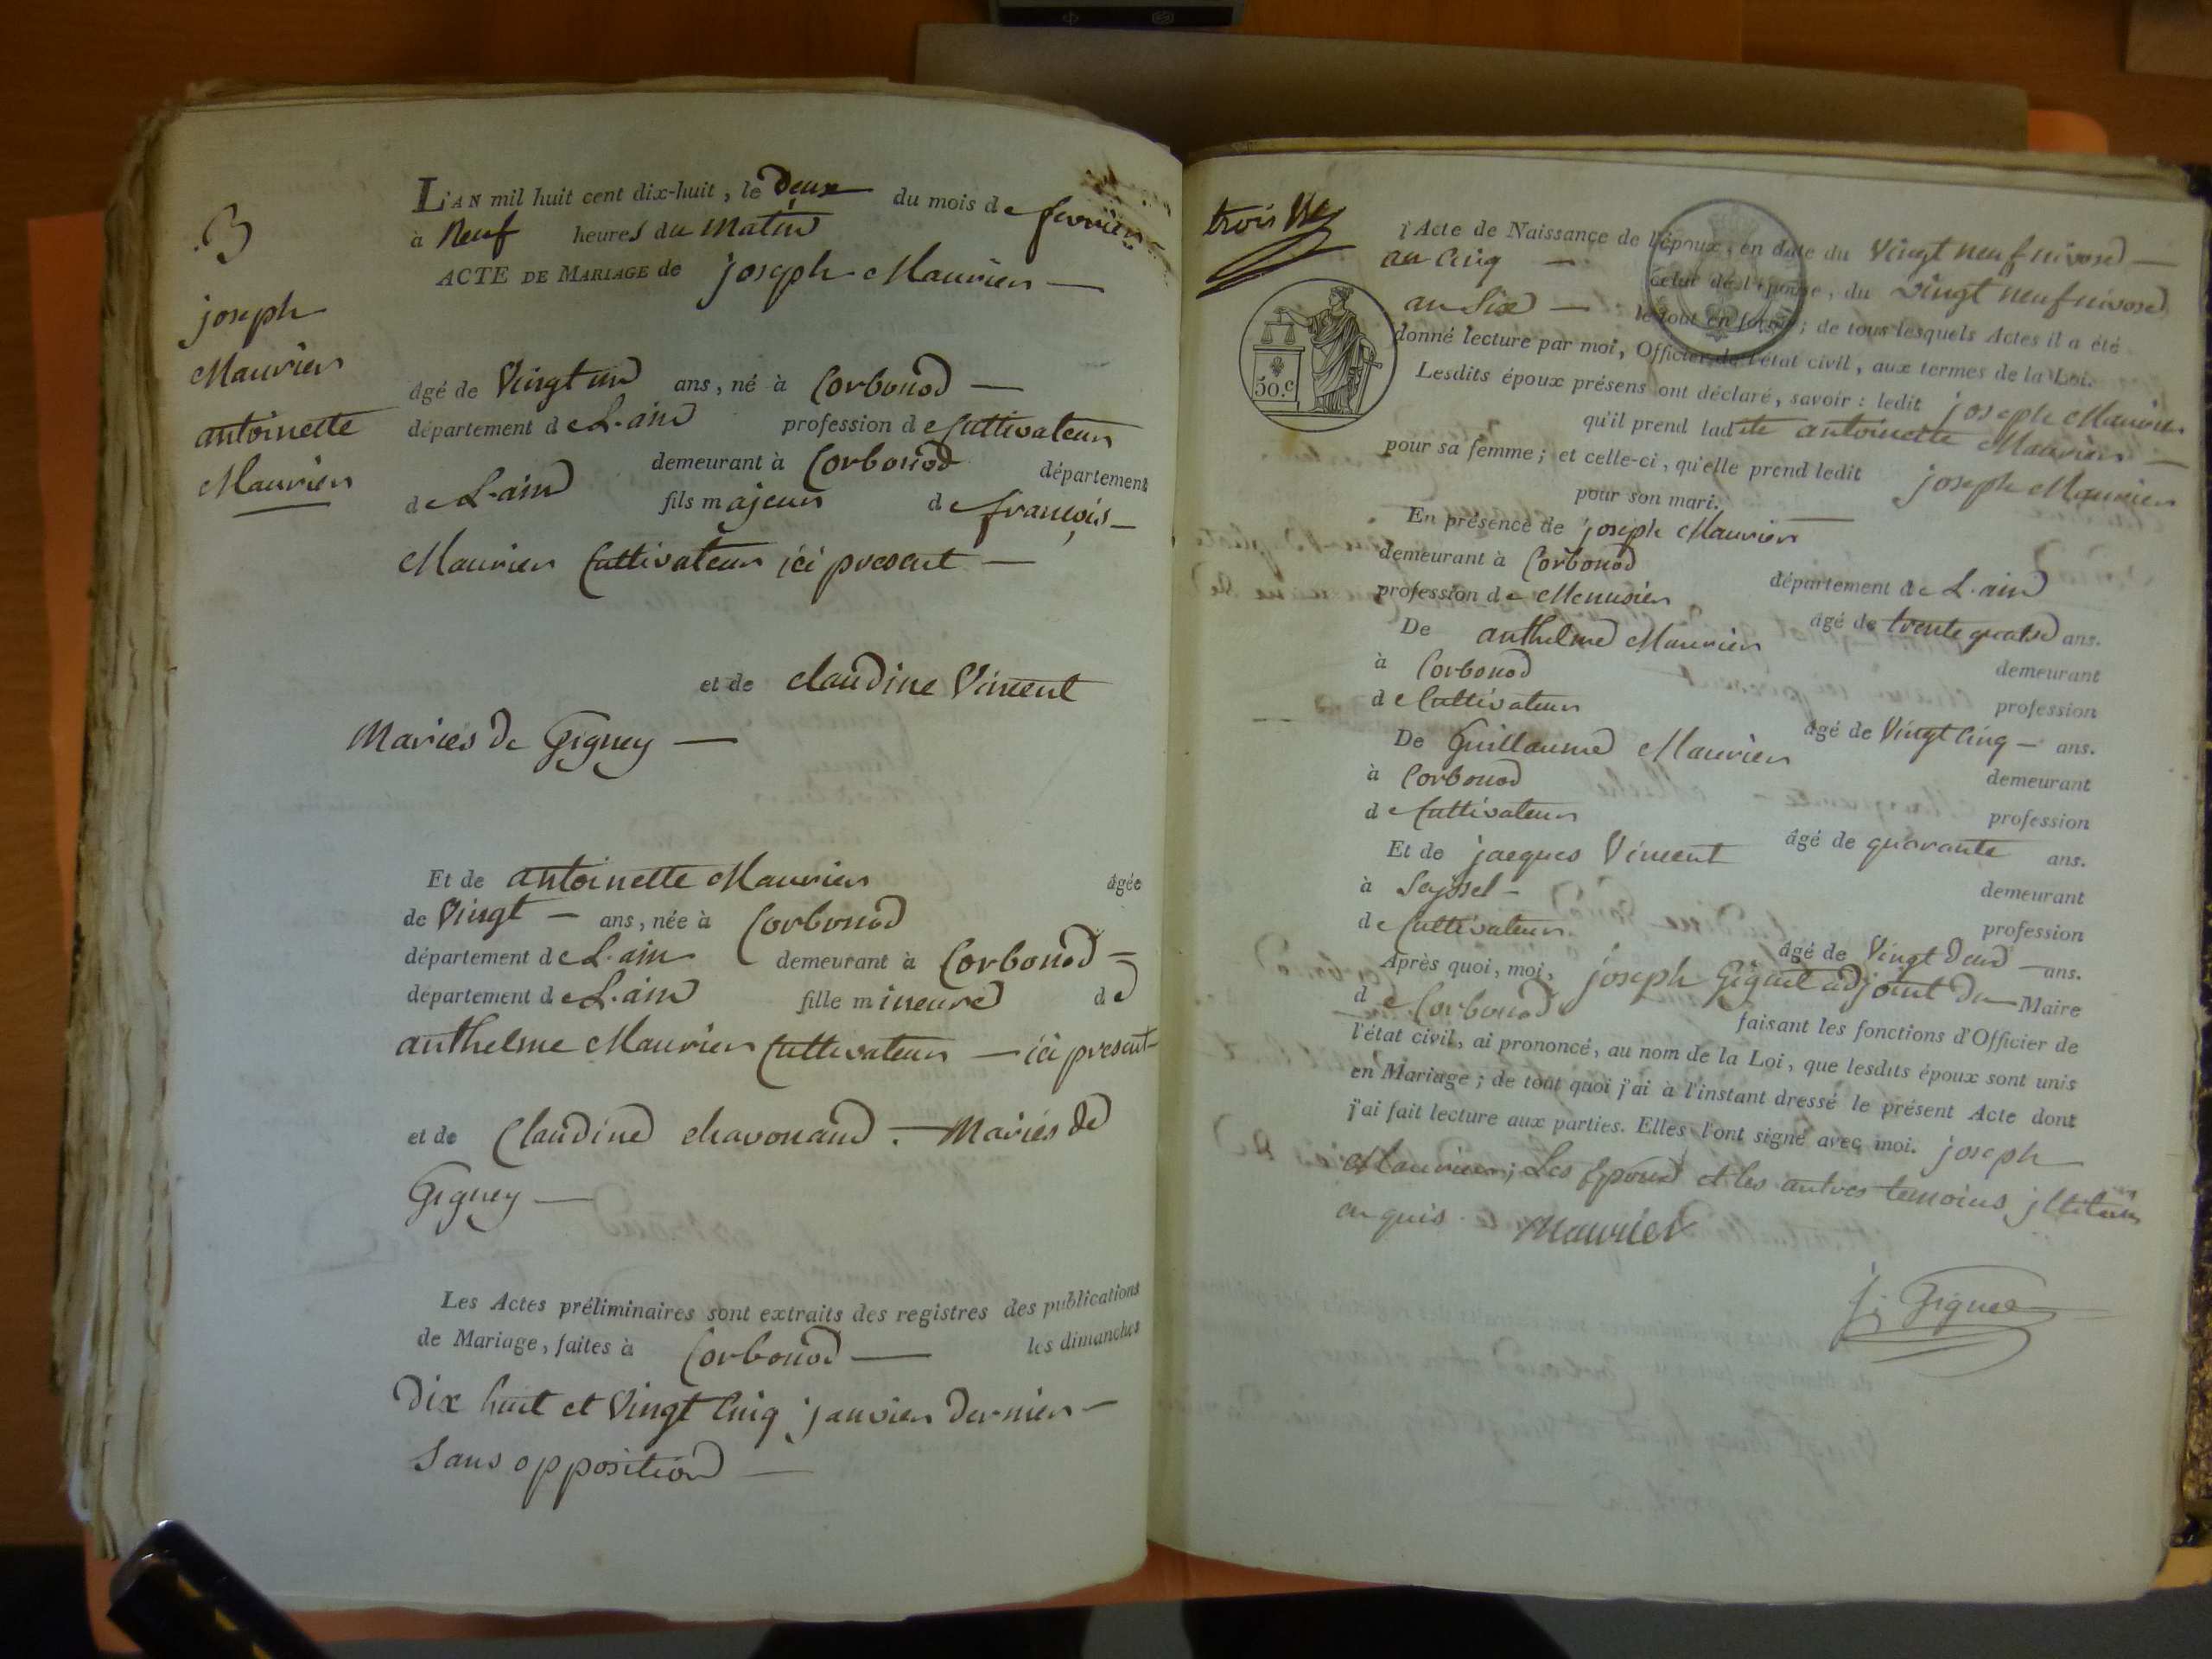 3
joseph
Maurier
antoinette
Maurier
L'AN mil huit cent dix-huit, le Deux du mois de fevrier
à Neuf heures du Matin
ACTE DE MARIAGE de joseph Maurier
âgé de Vingt un ans, né à Corbonod
département de L'ain profession de Cultivateur
demeurant à Corbonod département
de L'ain fils majeur de françois
Maurier Cultivateur ici present
et de claudine Vincent
Mariés de Gigney
Et de antoinette Maurier âgée
de Vingt ans, née à Corbonod
département de L'ain demeurant à Corbonod
département de L'ain fille mineure de
anthelme Maurier Cultivateur ici present
et de Claudine chavonand Mariés de
Gigney
Les Actes préliminaires sont extraits des registres des publications
de Mariage, faites à Corbonod les dimanches
Dix huit et Vingt Cinq janvier dernier
Sans opposition
trois
50.c
l'Acte de Naissance de l'époux, en date du Vingt neuf nivose
an Cinq celui de l'épouse, du Vingt neuf nivose
an Six le tout en forme; de tous lesquels Actes il a été
donné lecture par moi, Officier de l'état civil, aux termes de la Loi.
Lesdits époux présens ont déclaré, savoir : ledit joseph Maurier
qu'il prend ladite antoinette Maurier
pour sa femme; et celle-ci, qu'elle prend ledit joseph Maurier
pour son mari.
En présence de joseph Maurier
demeurant à Corbonod département de L'ain
profession de Menusier âgé de trente quatre ans.
De anthelme Maurier demeurant
à Corbonod profession
de Cultivateur âgé de Vingt Cinq ans.
De Guillaume Maurier demeurant
à Corbonod profession
de Cultivateur âgé de quarante ans.
Et de jacques Vincent demeurant
à Seyssel profession
de Cultivateur âgé de Vingt Deux ans.
Après quoi, moi, joseph Giguet adjoint du Maire
de Corbonod faisant les fonctions d'Officier de
l'état civil, ai prononcé, au nom de la Loi, que lesdits époux sont unis
en Mariage; de tout quoi j'ai à l'instant dressé le présent Acte dont
j'ai fait lecture aux parties. Elles l'ont signé avec moi. joseph
Maurier; Les Epoux et les autres temoins
Maurier